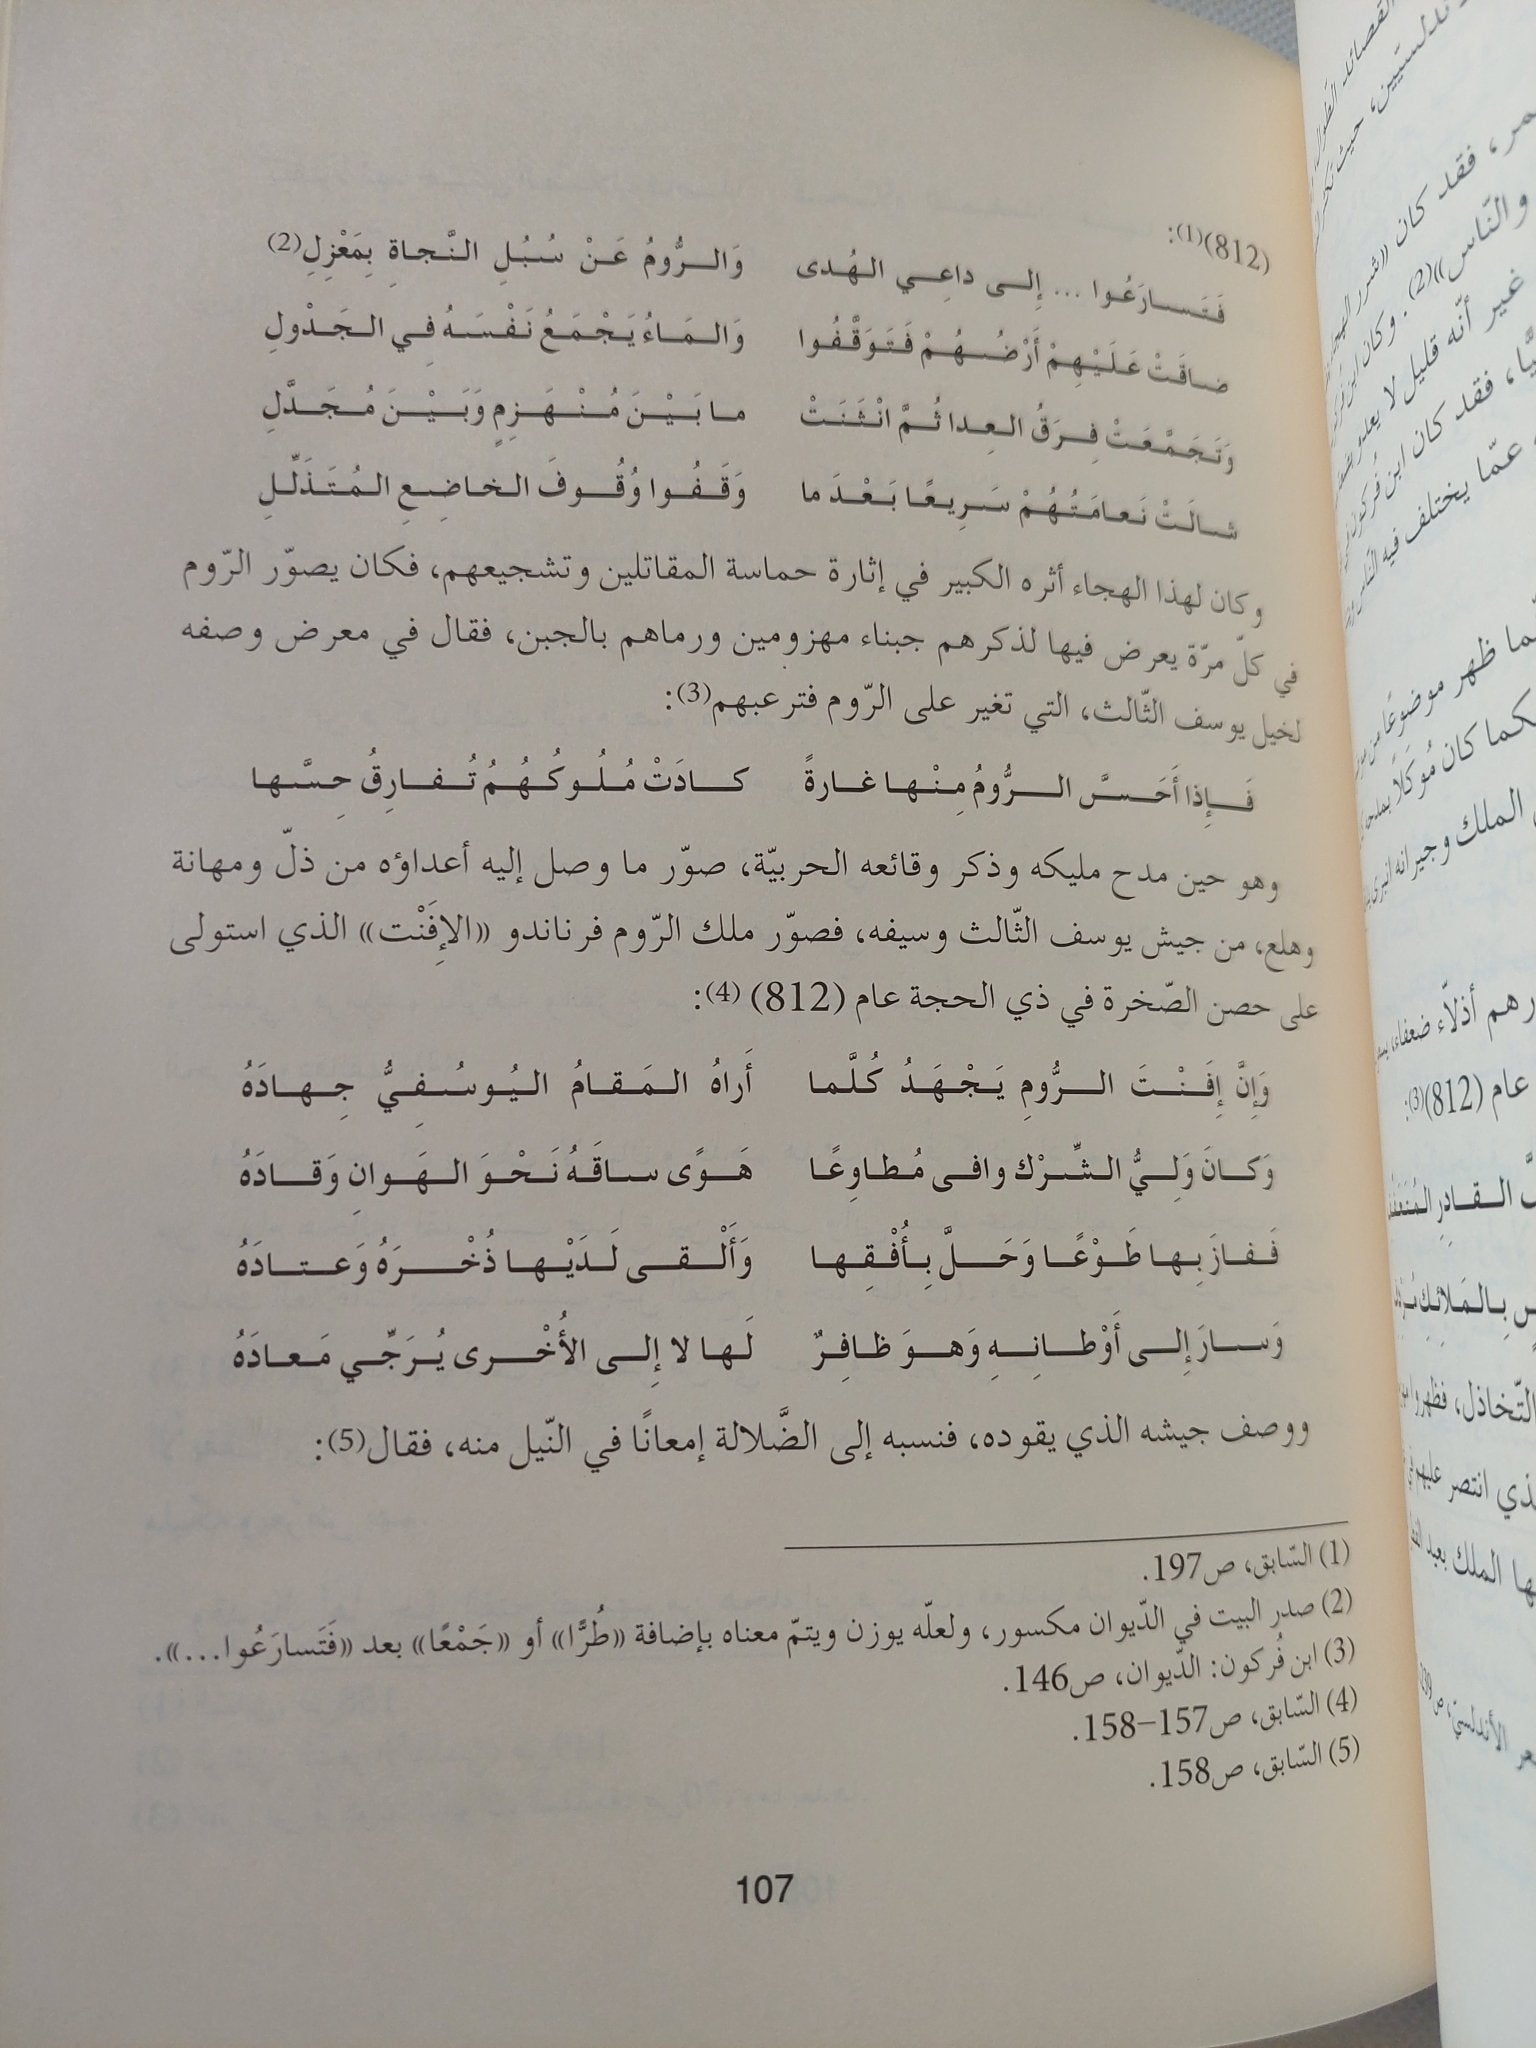 (812)(1):
فَتَسارَعُوا ... إِلى داعِي الهُدى وَالرُّومُ عَنْ سُبُلِ النَّجاةِ بِمَعْزِلِ(2)
ضاقَتْ عَلَيْهِمْ أَرْضُهُمْ فَتَوَقَّفُوا وَالمَاءُ يَجْمَعُ نَفْسَهُ فِي الجَدْولِ
وَتَجَمَّعَتْ فِرَقُ العِدا ثُمَّ انْثَنَتْ ما بَيْنَ مُنْهَزِمٍ وَبَيْنَ مُجَدَّلِ
شالَتْ نَعامَتُهُمْ سَرِيعًا بَعْدَ ما وَقَفُوا وُقُوفَ الخاضِعِ المُتَذَلِّلِ
وكان لهذا الهجاء أثره الكبير في إثارة حماسة المقاتلين وتشجيعهم، فكان يصوّر الرّوم
في كلّ مرّة يعرض فيها لذكرهم جبناء مهزومين ورماهم بالجبن، فقال في معرض وصفه
لخيل يوسف الثّالث، التي تغير على الرّوم فترعبهم(3):
فَإِذا أَحَسَّ الرُّومُ مِنْها غارةً كادَتْ مُلُوكُهُمُ تُفارِقُ حِسَّها
وهو حين مدح مليكه وذكر وقائعه الحربيّة، صوّر ما وصل إليه أعداؤه من ذلّ ومهانة
وهلع، من جيش يوسف الثّالث وسيفه، فصوّر ملك الرّوم فرناندو «الإفَنْت» الذي استولى
على حصن الصّخرة في ذي الحجة عام (812) (4):
وَإِنَّ إِفَنْتَ الرُّومِ يَجْهَدُ كُلَّما أَراهُ المَقامُ اليُوسُفِيُّ جِهادَهُ
وَكانَ وَلِيُّ الشِّرْك وافى مُطاوِعًا هَوًى ساقَهُ نَحْوَ الهَوانِ وَقادَهُ
فَفازَ بِها طَوْعًا وَحَلَّ بِأُفْقِها وَأَلْقى لَدَيْها ذُخْرَهُ وَعَتادَهُ
وَسارَ إِلى أَوْطانِهِ وَهوَ ظافِرٌ لَها لا إِلى الأُخْرى يُرَجِّي مَعادَهُ
ووصف جيشه الذي يقوده، فنسبه إلى الضَّلالة إمعانًا في النّيل منه، فقال(5):
(1) السّابق، ص197.
(2) صدر البيت في الدّيوان مكسور، ولعلّه يوزن ويتمّ معناه بإضافة «طُرًّا» أو «جَمْعًا» بعد «فَتَسارَعُوا...».
(3) ابن فُركون: الدّيوان، ص146.
(4) السّابق، ص157–158.
(5) السّابق، ص158.
107